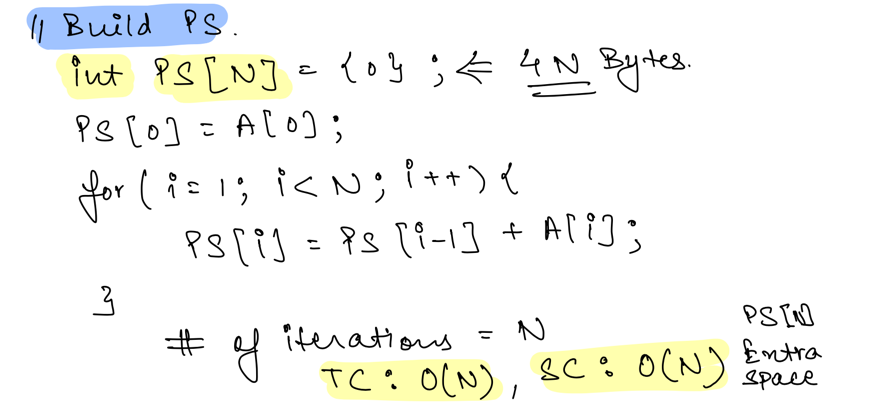 // Build PS.
int PS[N] = {0} ; ⇐ 4N Bytes.
PS[0] = A[0];
for( i = 1; i < N; i++) {
PS[i] = PS [i-1] + A[i];
}
# of iterations = N
TC : O(N), SC : O(N)
PS[N]
Extra
space